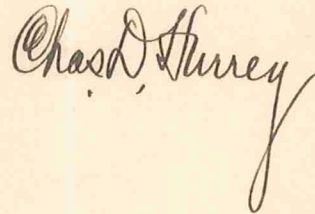 Chas. D. Hurrey